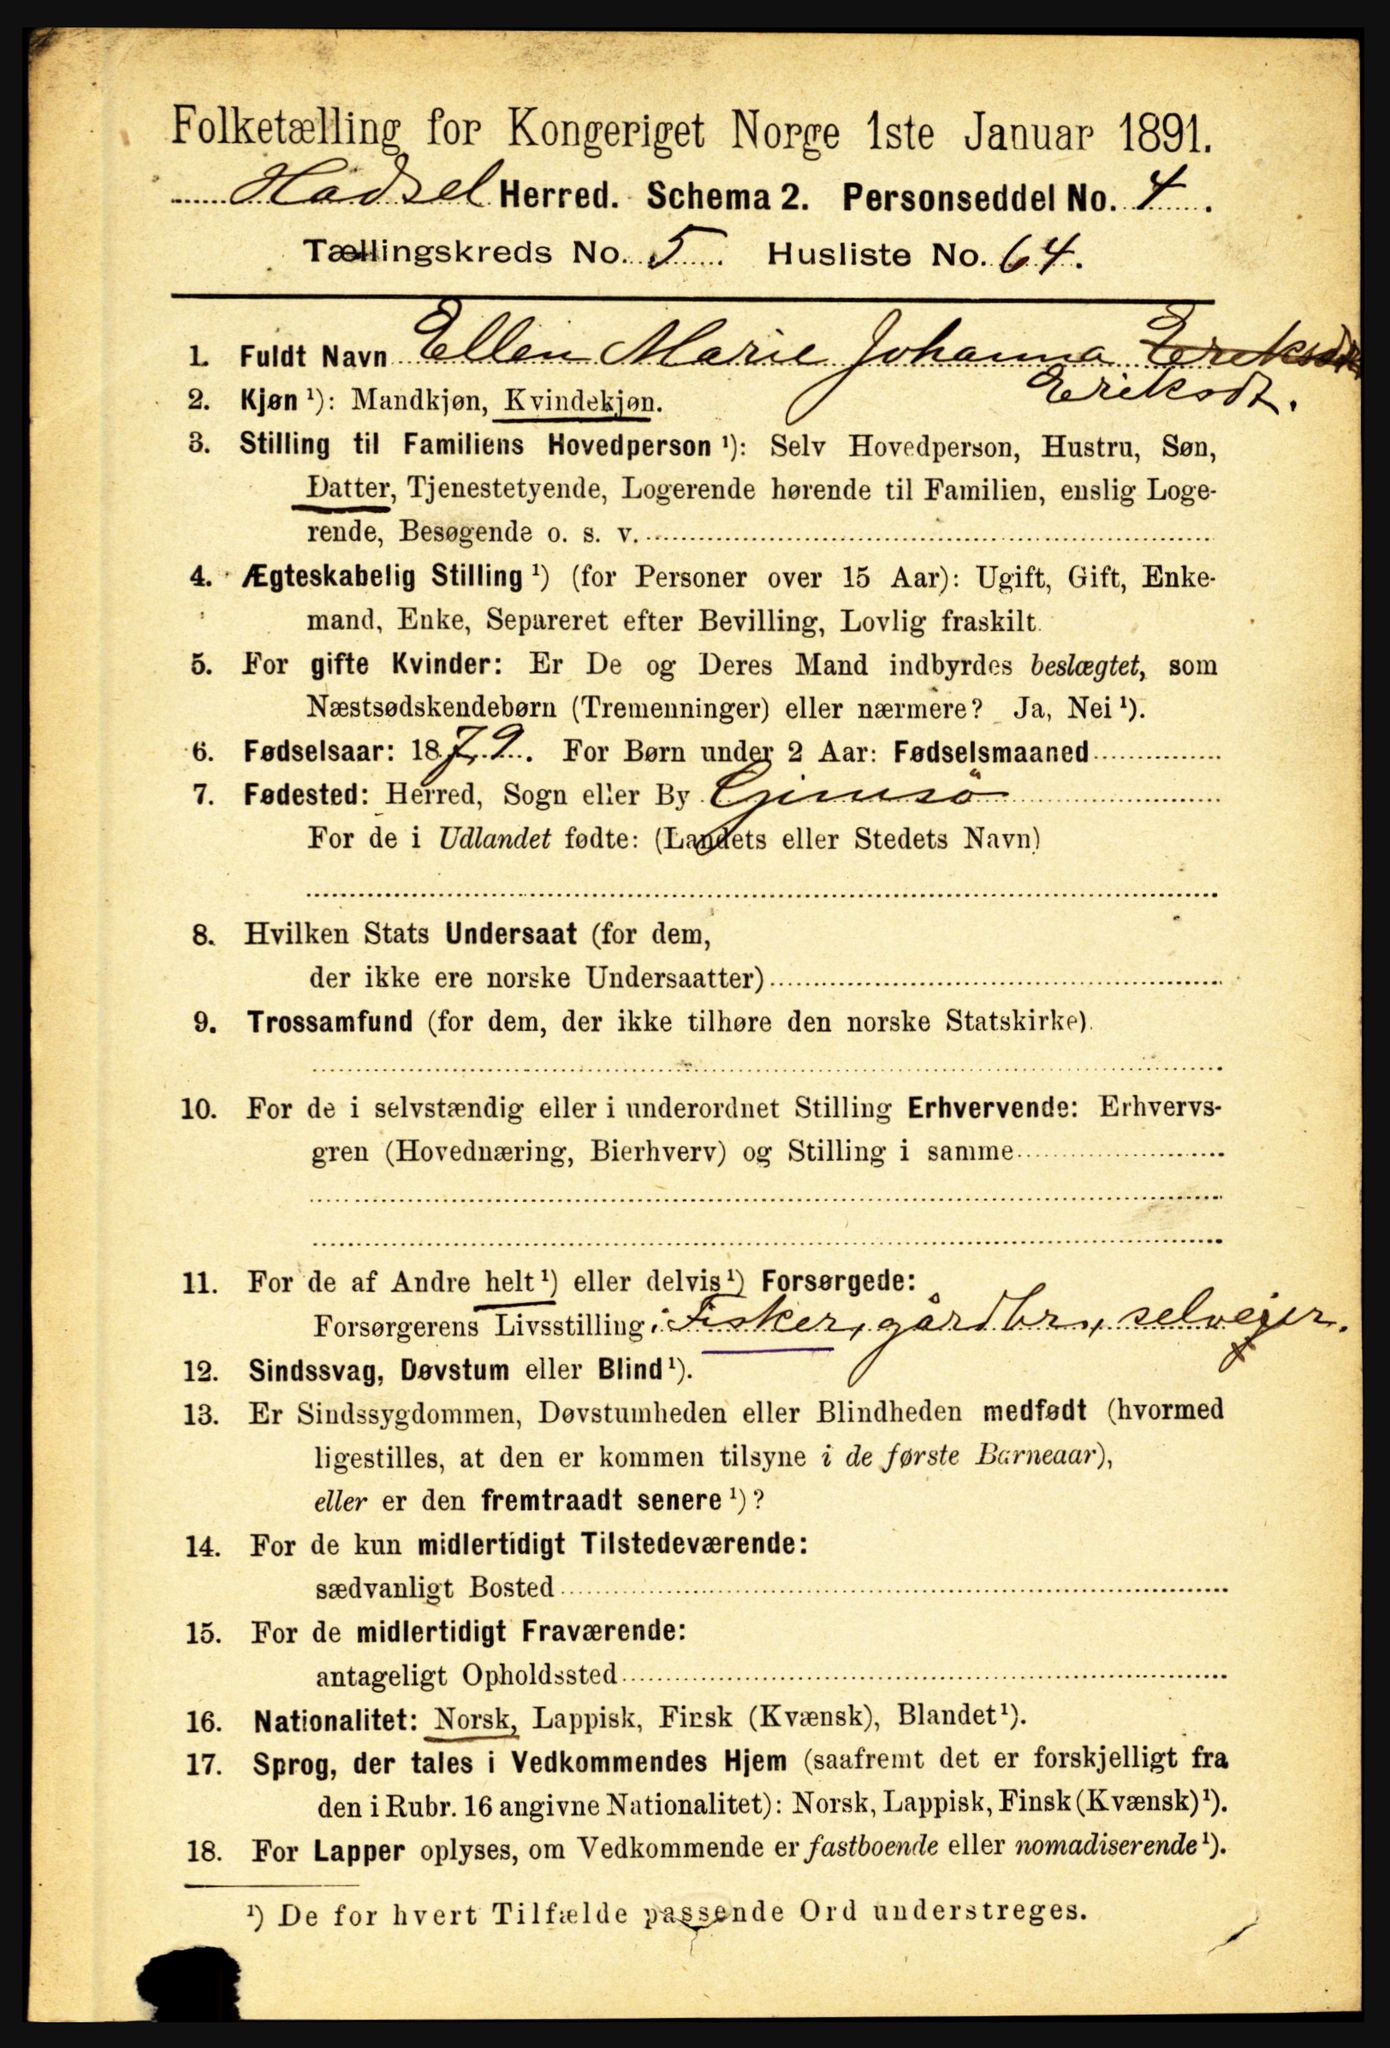 Folketælling for Kongeriget Norge 1ste Januar 1891.
Hadsel Herred. Schema 2. Personseddel No. 4.
Tællingskreds No. 5. Husliste No. 64.
1. Fuldt Navn Ellen Marie Johanna Eriksdt
Eriksdt.
2. Kjøn ¹): Mandkjøn, Kvindekjøn.
3. Stilling til Familiens Hovedperson ¹): Selv Hovedperson, Hustru, Søn,
Datter, Tjenestetyende, Logerende hørende til Familien, enslig Loge-
rende, Besøgende o. s. v.
4. Ægteskabelig Stilling ¹) (for Personer over 15 Aar): Ugift, Gift, Enke-
mand, Enke, Separeret efter Bevilling, Lovlig fraskilt.
5. For gifte Kvinder: Er De og Deres Mand indbyrdes beslægtet, som
Næstsødskendebørn (Tremenninger) eller nærmere? Ja, Nei ¹).
6. Fødselsaar: 1879. For Børn under 2 Aar: Fødselsmaaned
7. Fødested: Herred, Sogn eller By Gimsö
For de i Udlandet fødte: (Landets eller Stedets Navn)
8. Hvilken Stats Undersaat (for dem,
der ikke ere norske Undersaatter)
9. Trossamfund (for dem, der ikke tilhøre den norske Statskirke).
10. For de i selvstændig eller i underordnet Stilling Erhvervende: Erhvervs-
gren (Hovednæring, Bierhverv) og Stilling i samme
11. For de af Andre helt ¹) eller delvis ¹) Forsørgede:
Forsørgerens Livsstilling: Fisker, gårdbr., selvejer.
12. Sindssvag, Døvstum eller Blind ¹).
13. Er Sindssygdommen, Døvstumheden eller Blindheden medfødt (hvormed
ligestilles, at den er kommen tilsyne i de første Barneaar),
eller er den fremtraadt senere ¹)?
14. For de kun midlertidigt Tilstedeværende:
sædvanligt Bosted
15. For de midlertidigt Fraværende:
antageligt Opholdssted
16. Nationalitet: Norsk, Lappisk, Finsk (Kvænsk), Blandet ¹).
17. Sprog, der tales i Vedkommendes Hjem (saafremt det er forskjelligt fra
den i Rubr. 16 angivne Nationalitet): Norsk, Lappisk, Finsk (Kvænsk) ¹).
18. For Lapper oplyses, om Vedkommende er fastboende eller nomadiserende ¹).
¹) De for hvert Tilfælde passende Ord understreges.